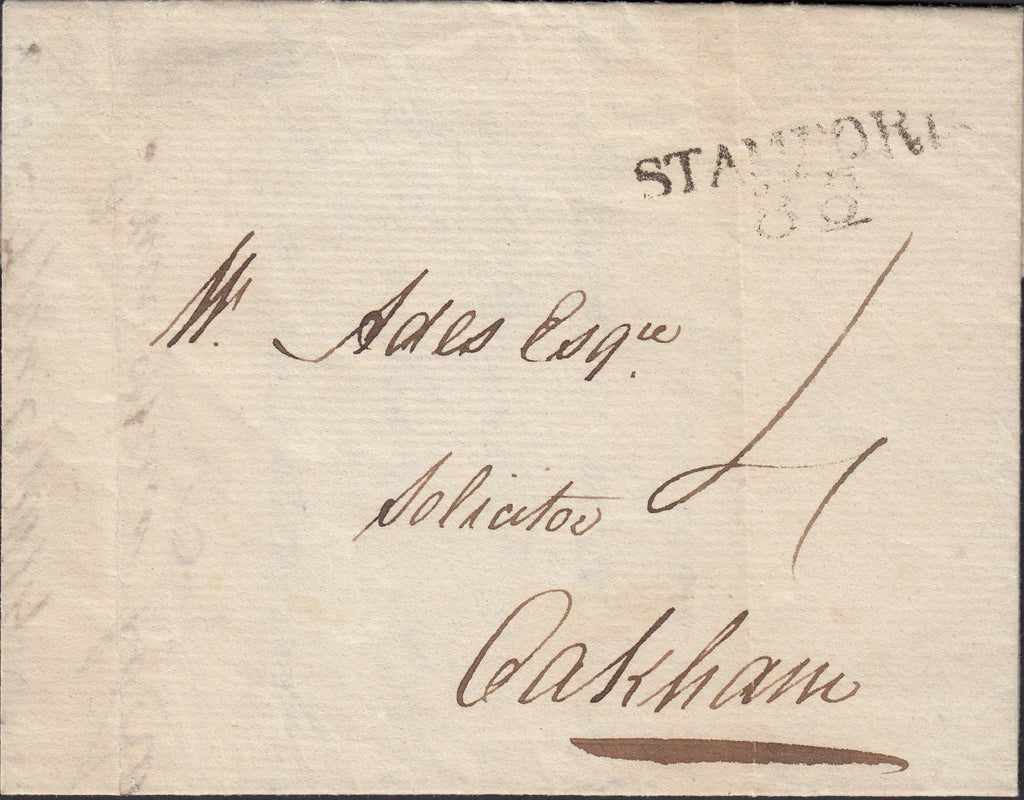 STAMFORD
Wm. Ades Esqre
Solicitor
4
Oakham